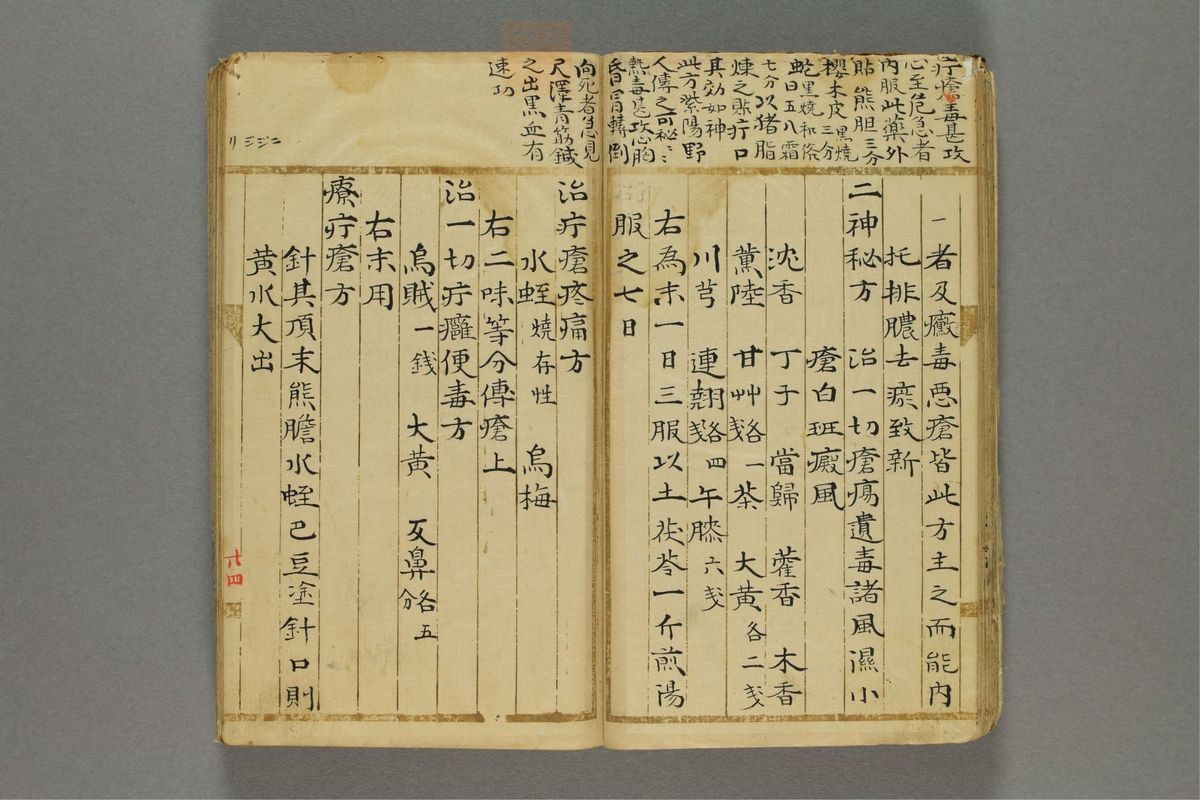 疔瘡毒甚攻
心至危急者
内服此薬外
貼熊胆三分
櫻木皮黒焼三分
蛇黒焼和條
虵日五八霜
七分以猪脂
煉之貼疔口
其効如神
此方紫陽野
人傳之可秘〻
熱毒甚攻心胸
昏冒轉倒
向死者急見
尺澤青筋鍼
之出黒血有
速功
一者及癥毒悪瘡皆此方主之而能内
托排膿去瘀致新
二神秘方 治一切瘡瘍遺毒諸風濕小
瘡白斑癜風
沈香 丁子 當歸 藿香 木香
薫陸 甘艸各一戔 茶 大黄各二戔
川芎 連翹各四戔 午膝六戔
右為末一日三服以土茯苓一斤煎湯
服之七日
治疔瘡疼痛方
水蛭燒存性 烏梅
右二味等分傳瘡上
治一切疔癰便毒方
烏賊一錢 大黄 反鼻各五分
右末用
療疔瘡方
針其頂末熊膽水蛭巴豆塗針口則
黄水大出
廿四